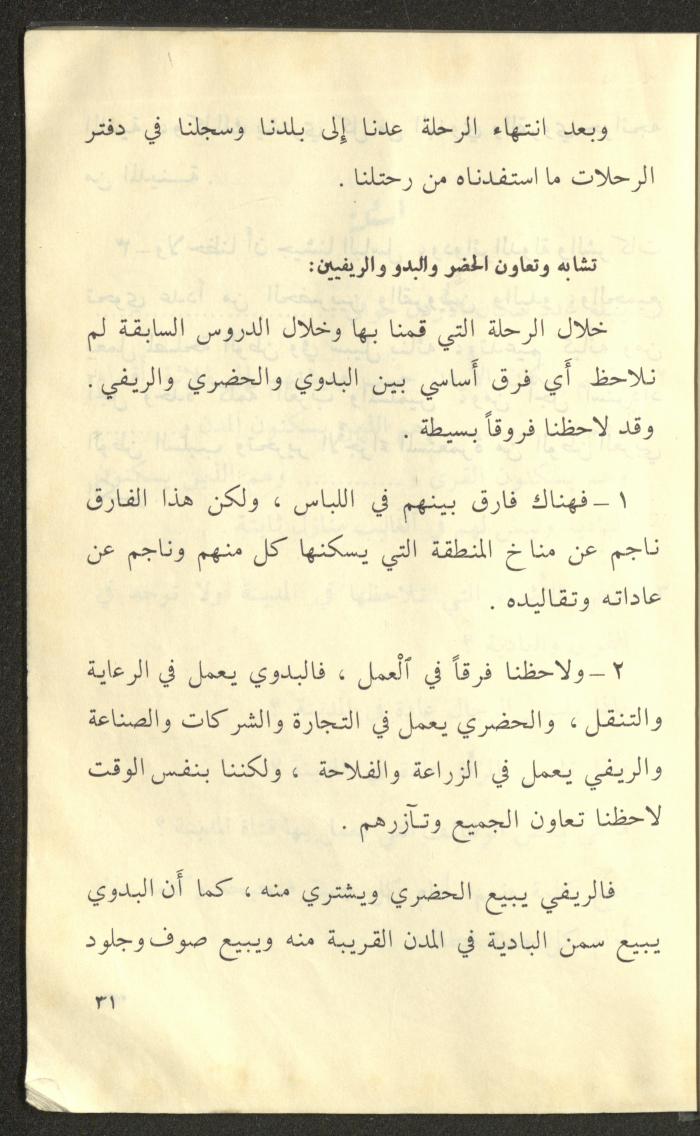 وبعد انتهاء الرحلة عدنا إلى بلدنا وسجلنا في دفتر
الرحلات ما استفدناه من رحتلنا .
تشابه وتعاون الحضر والبدو والريفيين:
خلال الرحلة التي قمنا بها وخلال الدروس السابقة لم
نلاحظ أي فرق أساسي بين البدوي والحضري والريفي .
وقد لاحظنا فروقاً بسيطة .
١ – فهناك فارق بينهم في اللباس ، ولكن هذا الفارق
ناجم عن مناخ المنطقة التي يسكنها كل منهم وناجم عن
عاداته وتقاليده .
٢ – ولاحظنا فرقاً في ٱلْعمل ، فالبدوي يعمل في الرعاية
والتنقل ، والحضري يعمل في التجارة والشركات والصناعة
والريفي يعمل في الزراعة والفلاحة ، ولكننا بنفس الوقت
لاحظنا تعاون الجميع وتآزرهم .
فالريفي يبيع الحضري ويشتري منه ، كما أن البدوي
يبيع سمن البادية في المدن القريبة منه ويبيع صوف وجلود
٣١